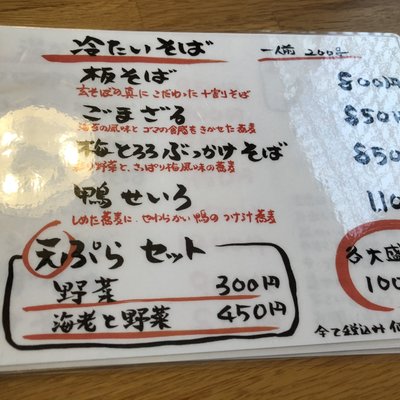 冷たいそば 一人前 200g
板そば 800円
玄そばの真にこだわった十割りそば
ごまざる 850
海苔の風味とゴマの食感をきかせた蕎麦
梅とろろぶっかけそば 850
野菜と、さっぱり梅風味の蕎麦
鴨せいろ 110
しめた蕎麦に、やわらかい鴨のつけ汁蕎麦
天ぷらセット
野菜 300円
海老と野菜 450円
各大盛
100
全て税込み